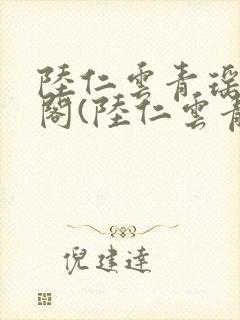 陸仁雲青瑶
閣(陸仁雲青
倪建達